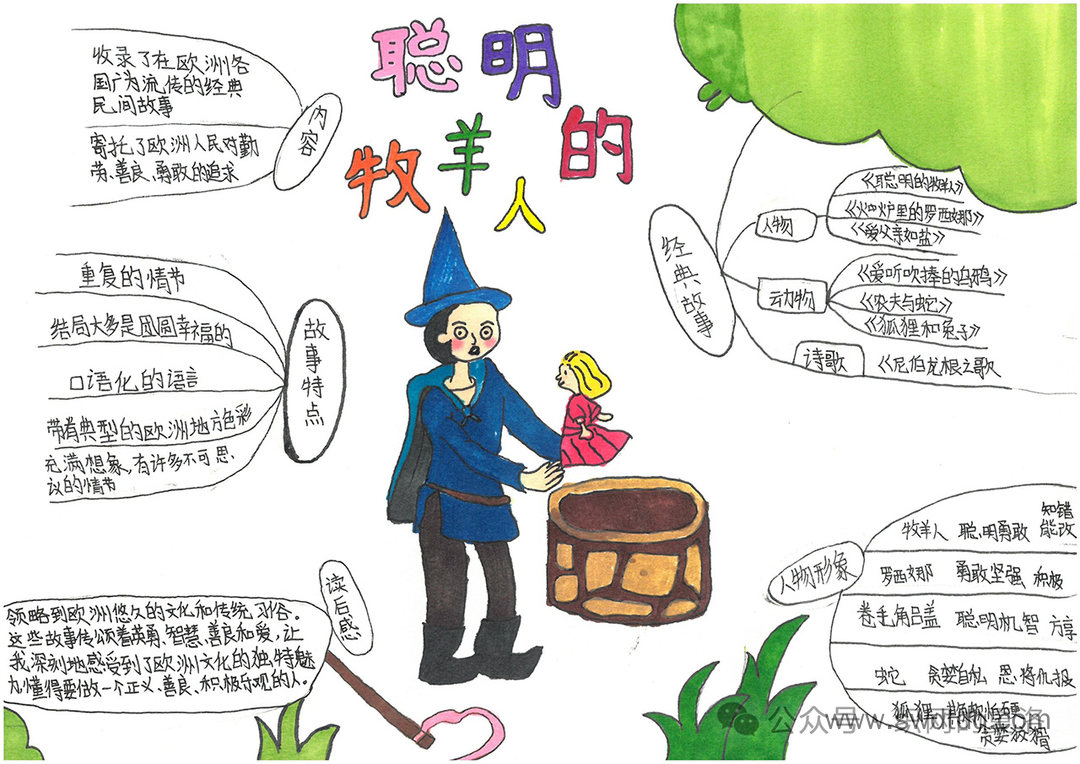 聪明的
牧羊人
内容
收录了在欧洲各
国广为流传的经典
民间故事
寄托了欧洲人民对勤
劳、善良、勇敢的追求
故事特点
重复的情节
结局大多是团圆幸福的
口语化的语言
带有典型的欧洲地方色彩
充满想象,有许多不可思
议的情节
读后感
领略到欧洲悠久的文化和传统习俗。
这些故事传颂着英勇、智慧、善良和爱,让
我深刻地感受到了欧洲文化的独特魅
力,懂得要做一个正义、善良、积极乐观的人。
经典故事
人物
《聪明的牧羊人》
《火炉里的罗西娜》
《爱父亲如盐》
动物
《爱听吹捧的乌鸦》
《农夫与蛇》
《狐狸和兔子》
诗歌
《尼伯龙根之歌
人物形象
牧羊人 聪明勇敢 知错
能改
罗西娜 勇敢坚强 积极
卷毛角吕盖 聪明机智
蛇 贪婪自私 恩将仇报
狐狸
贪婪狡猾
公众号